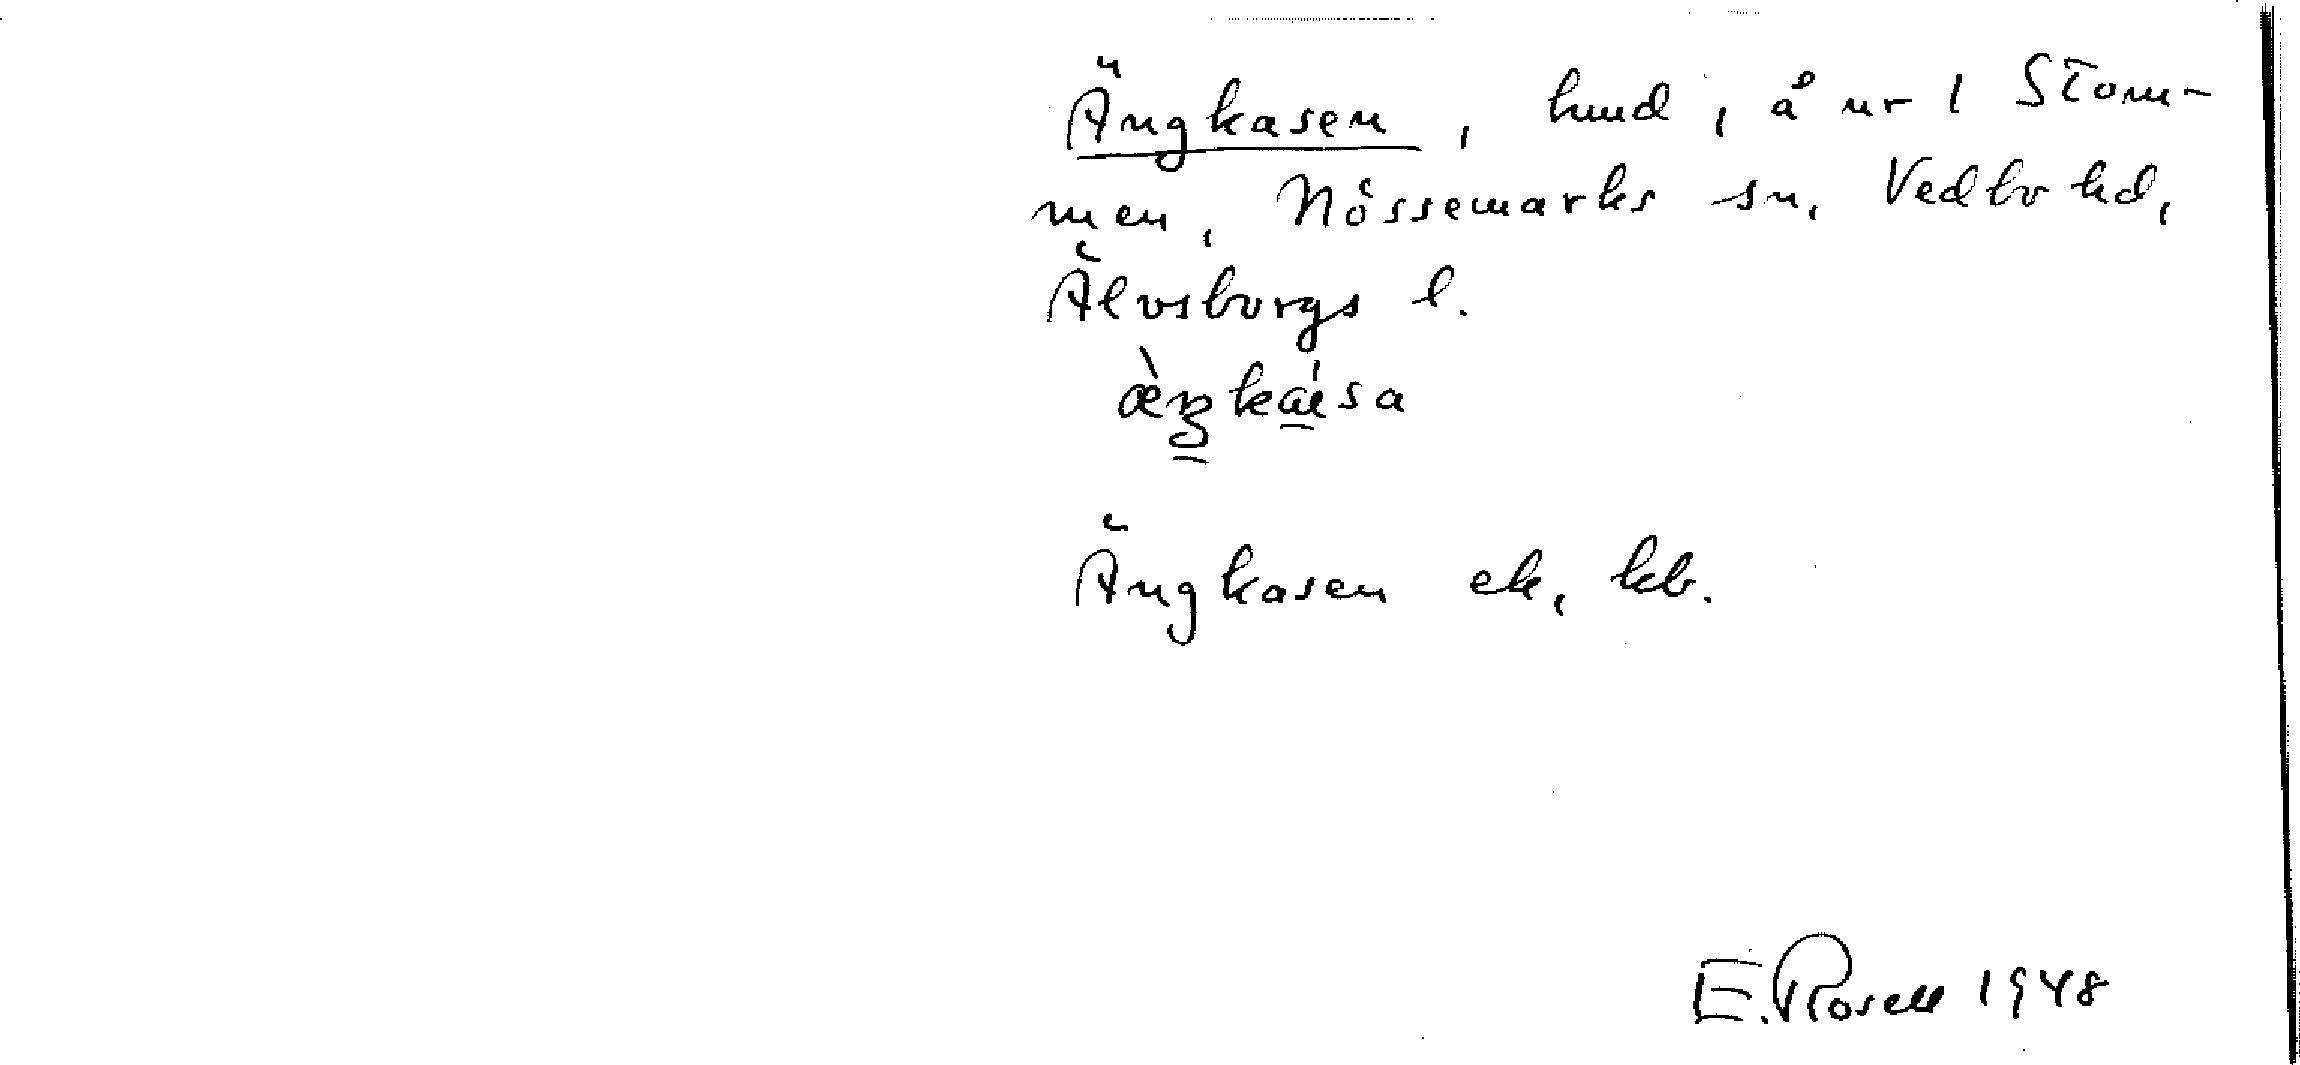 Ängkasen, hmd, å nr 1 Stom-
men, Nössemarks sn, Vedbo hd,
Älvsborgs l.
Ängkasen ek, kb.
E. Rosell 1948